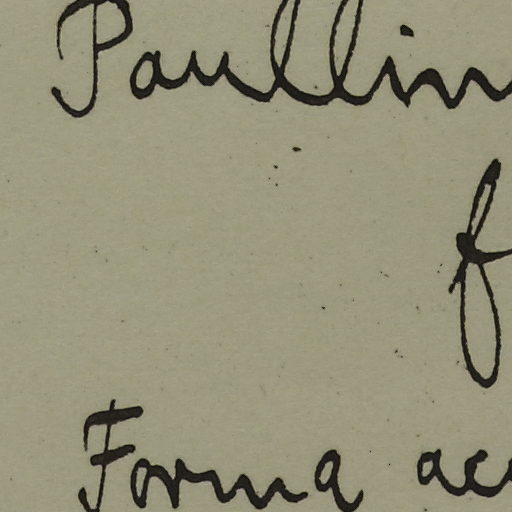 Paullin
f
Forma ac